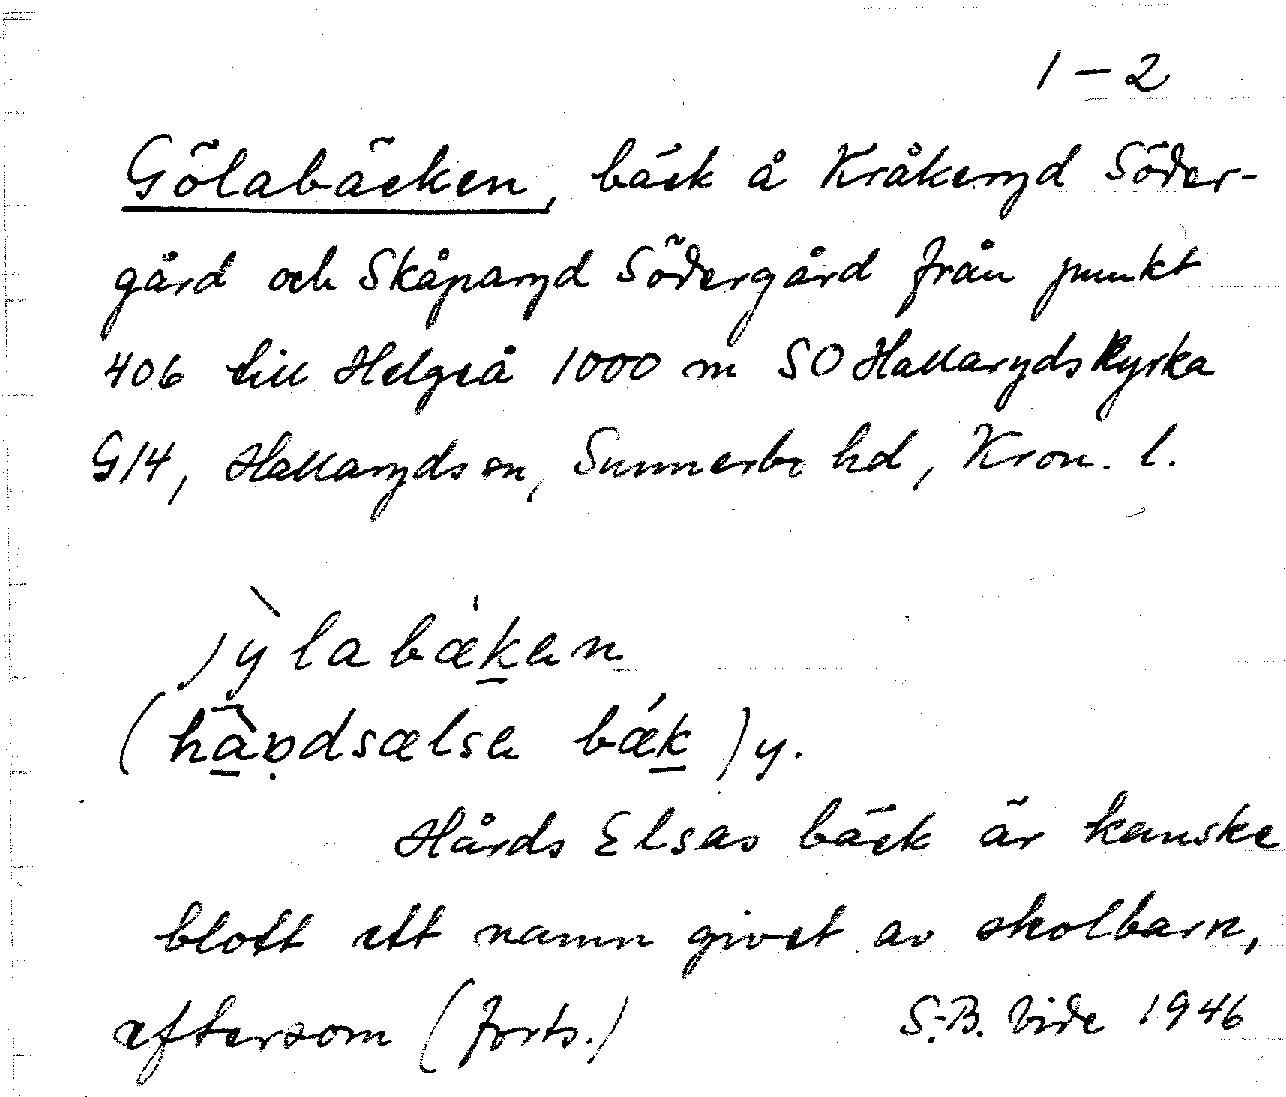 1 – 2
Gölabäcken, bäck å Kråkeryd Söder-
gård och Skåparyd Södergård från punkt
406 till Helgeå 1000 m SO Hallaryds Kyrka
G14, Hallaryds sn, Sunnerbo hd, Kron. l.
jỳlabækan
(hàndsælsa bǽk) y.
Hårds Elsas bäck är kanske
blott ett namn givet av skolbarn,
eftersom (forts.) S.-B. Vide 1946